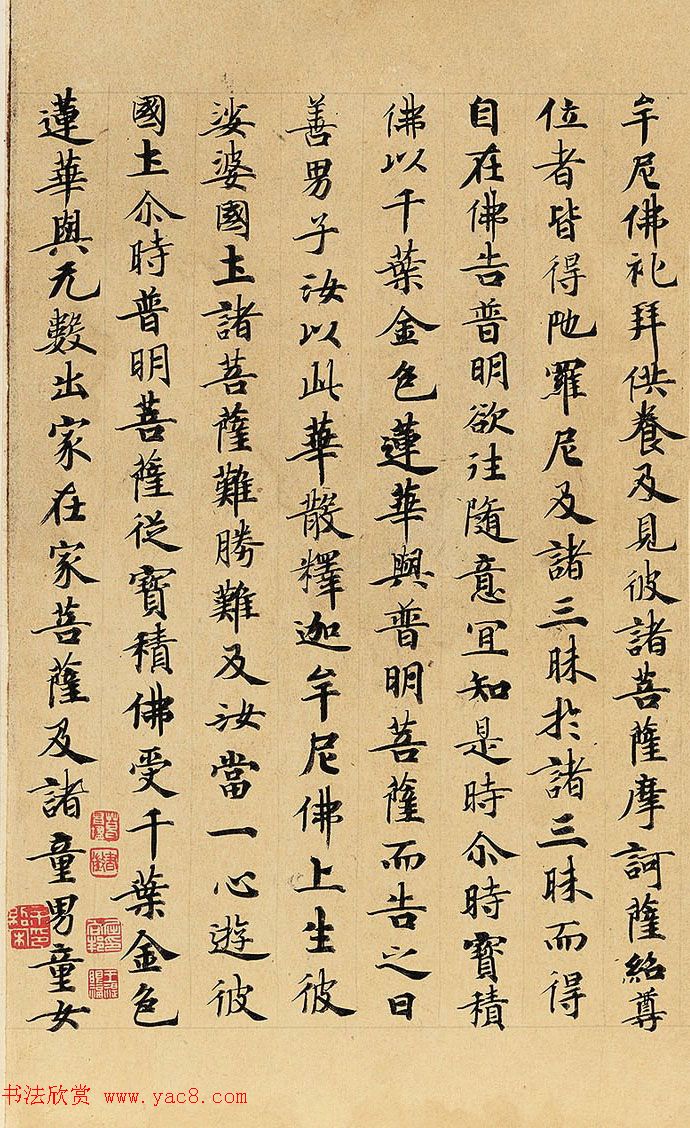 牟尼佛礼拜供養及見彼諸菩薩摩訶薩紹尊
位者皆得陁羅尼及諸三昧於諸三昧而得
自在佛告普明欲往隨意宜知是時尒時寶積
佛以千葉金色蓮華與普明菩薩而告之曰
善男子汝以此華散釋迦牟尼佛上生彼
娑婆國土諸菩薩難勝難及汝當一心遊彼
國土尒時普明菩薩從寶積佛受千葉金色
蓮華與无數出家在家菩薩及諸童男童女
书法欣赏 www.yac8.com